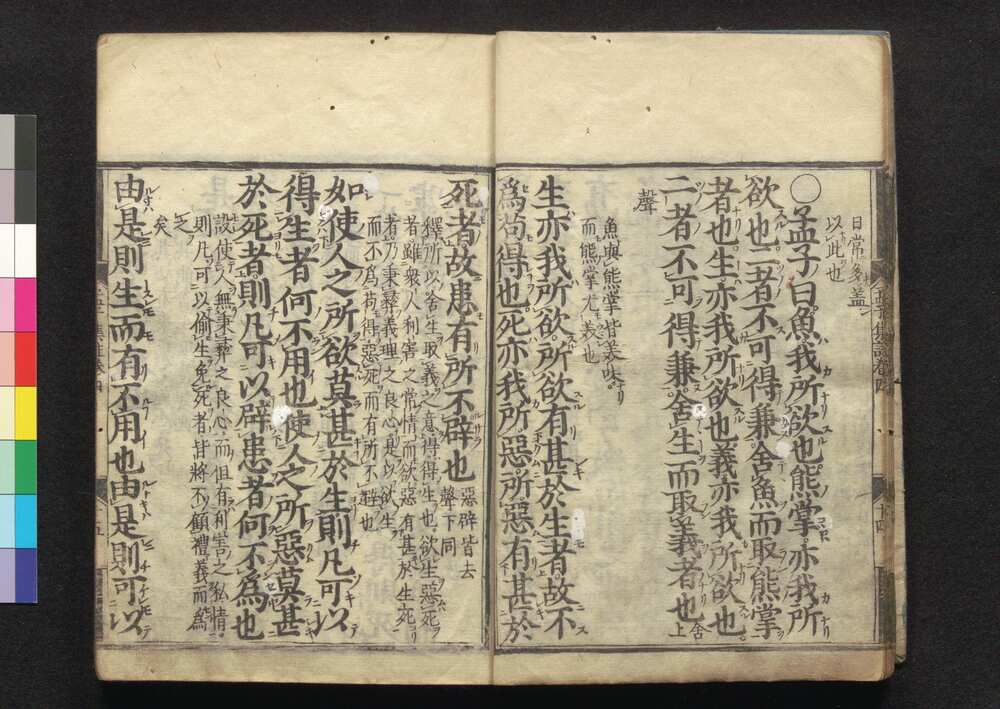 日常多蓋
以此也
○孟子曰魚我所欲也熊掌亦我所
欲也二者不可得兼舍魚而取熊掌
者也生亦我所欲也義亦我所欲也
二者不可得兼舍生而取義者也
舍上
聲
魚與熊掌皆美味
而熊掌尤美也
生亦我所欲所欲有甚於生者故不
爲苟得也死亦我所惡所惡有甚於
死者故患有所不辟也
惡辟皆去
聲下同
釋所以舍生取義之意得得生也欲生惡死
者雖衆人利害之常情而欲惡有甚於生死
者乃秉彝義理之良心是以欲生
而不爲苟得惡死而有所不避也
如使人之所欲莫甚於生則凡可以
得生者何不用也使人之所惡莫甚
於死者則凡可以辟患者何不為也
設使人無秉彝之良心而但有利害之私情
則凡可以偷生免死者皆將不顧禮義而爲
之
矣
由是則生而有不用也由是則可以